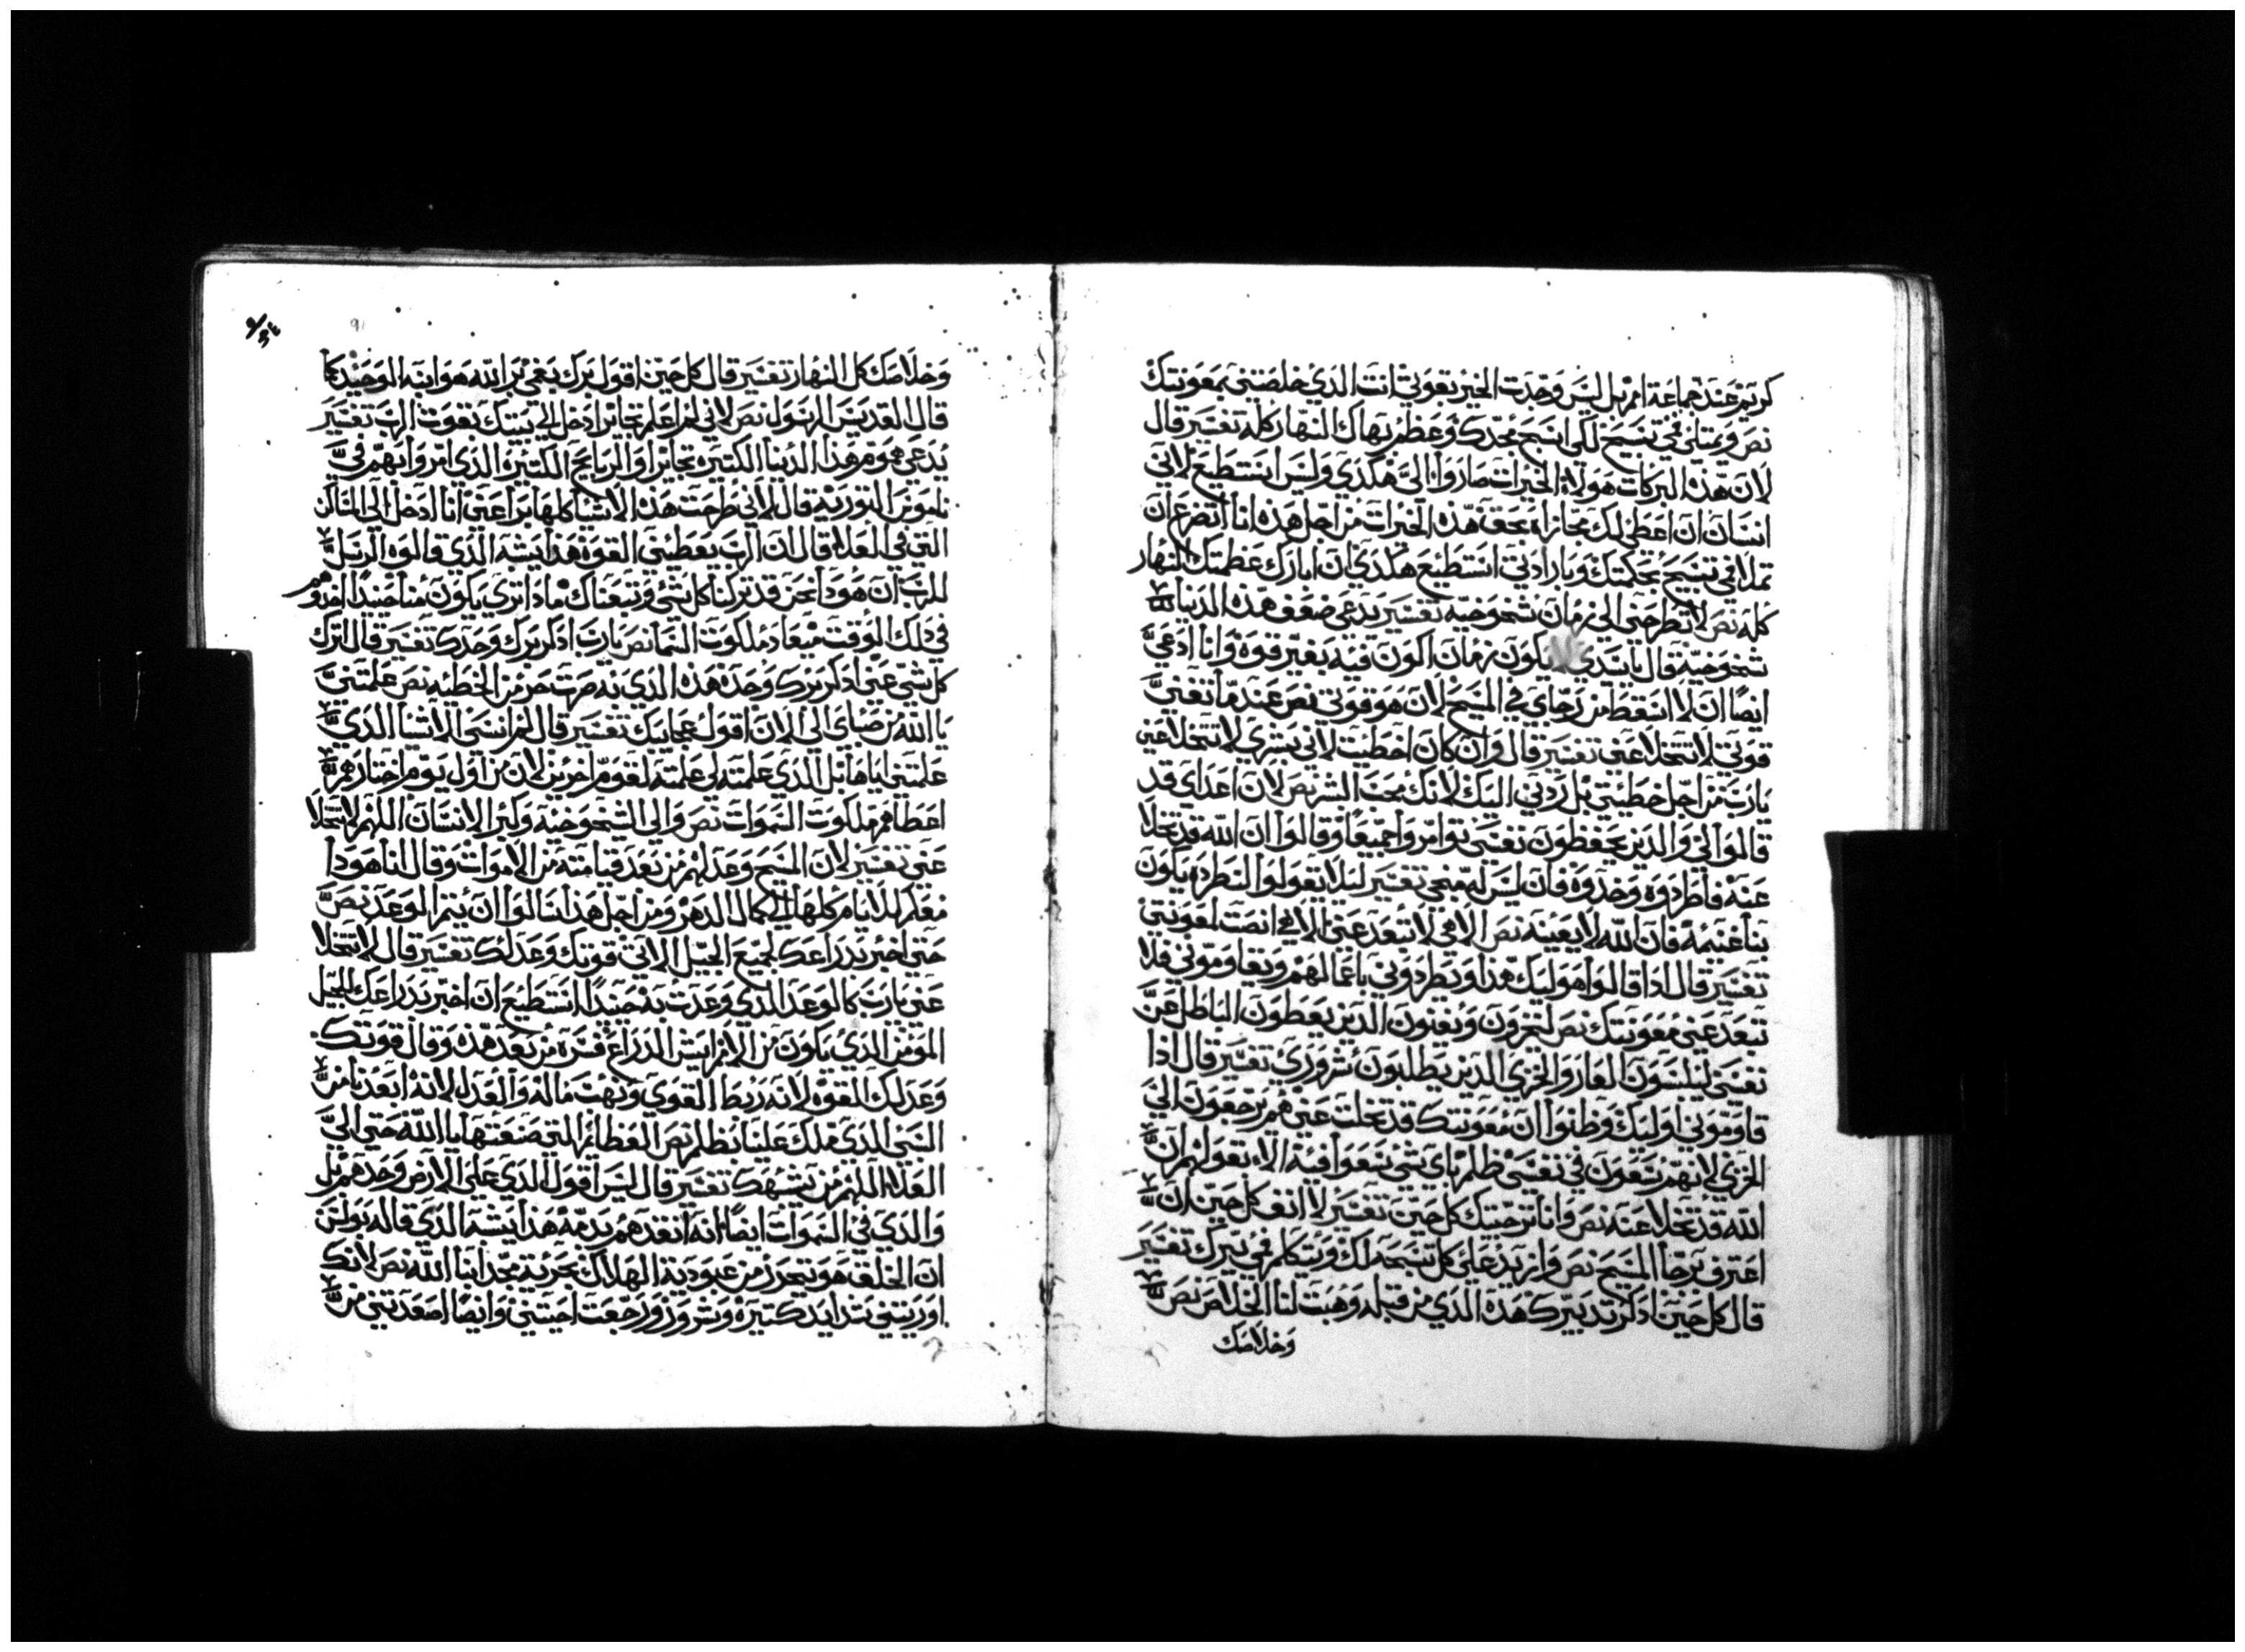 كريم عند جماعة امم بل ليس وجدت الخير بقوتي انت الذي خلصتني بمعونتك
نص ويمتلي فمي تسبيح لكي اسبح مجدك وعظم بهاك النهار كله تفسير قال
لان هذه البركات هولاء الخيرات صاروا اليَّ هكذي وليس استطيع لاني
انسان ان اعطي لك مجازاه بحق هذه الخيرات من اجل هذه انا اتضرع ان
تملا فمي تسبيح بحكمتك وبارادتي استطيع هكذي ان ابارك عظمتك النهار
كله نص لا تطرحني الى زمان شيخوخيه تفسير يدعى ضعف هذه الدنيا
شيخوخيه قال يا سيدي لا يكون زمان اكون فيه بغير قوه وانا ادعي
ايضًا ان لا اسقط من رجاي في المسيح لان هو قوتي نص عند ما تفني
قوتي لا تتخلا عني تفسير قال وان كان اخطيت لاني بشري لا تتخلا عني
يارب من اجل خطيتي بل ردني اليك لانك محب البشر نص لان اعداي قد
قالوا لي والذين يحفظون نفسي توامروا جميعًا وقالوا ان الله قد تخلا
عنه فاطردوه وخذوه فان ليس له منجي تفسير ليلا تقولوا النطرده يكون
لنا غنيمة فان الله لا يعينه نص الاهي لا تبعد عني الاهي انصت لمعونتي
تفسير قال اذا قالوا هوليك هذا ويطردوني باعمالهم ويقاوموني فلا
تبعد عني معونتك نص ليخزون ويفنون الذين يعطون الباطل عن
نفسي ليلبسون العار والخزي الذين يطلبون شروري تفسير قال اذا
قاوموني اوليك وظنوا ان معونتك قد تخلت عني هم يرجعون الى
الخزي لانهم يسعون في نفسي ظلم باي شي سعوا فيه الا بقولهم ان
الله قد تخلا عنه نص وانا ترجيتك كل حين تفسير لا اقف كل حين ان
اعترف برجا المسيح نص وازيد على كل تسبحه لك ويتكلم فمي ببرك تفسير
قال كل حين اذكر تدبيرك هذه الذي من قبله وهبت لنا الخلاص نص
وخلاصك
وخلاصك كل النهار تفسير قال كل حين اقول برك يعني بر الله هو ابنه الوحيد كما
قال القديس الرسول نص لاني لم اعلم تجائر ادخل الى بيتك بقوت الرب تفسير
يدعي هموم هذه الدنيا الكتيره تجائر او الربايح الكتير والذي امروا بهم في
ناموس التوريه قال لاني طرحت هذه الاشيا كلها برا عني انا ادخل الى المساكن
التي في العلاء قال لان الرب يعطيني القوه هذا يشبه الذي قالوه الرسل
للرب ان هودا نحن قد تركنا كل شي وتبعناك ماذا تري يكون منا حينيدًا
في ذلك الوقت ميعاد ملكوت السما نص يارب اذكر برك وحدك تفسير قال اترك
كل شي عني اذكر برك وحده هذه الذي به صرت حر من الخطيه نص علمتني
يا الله من صباي الى الان اقول عجايبك تفسير قال لم انسى الاشيا الذي
علمتني اياها بل الذي علمته لي علمته لقوم اخرين لان من اول يوم اختارهم
اعطاهم ملكوت السموات نص والى الشيخوخيه وكبر الانسان اللهم لا تتخلا
عني تفسير لان المسيح وعدهم من بعد قيامته من الاموات وقال لنا هودا
معكم الايام كلها الى كمال الدهر ومن اجل هذا سالوا ان يتم الوعد نص
حتى اخبر بدراعك لجميع الجيل الاتي قوتك وعدلك تفسير قال لا تتخلا
عني يارب كالوعد الذي وعدت به حينيدًا استطيع ان اخبر بدراعك للجيل
المومن الذي يكون من الامم ايش الدراع فسره من بعد هذه وقال قوتك
وعدلك القوه لانه ربط القوي ونهب ماله والعدل لانه ابعدنا من
السبي الذي ملك علينا بظلم نص العظائم التي صنعتها يا الله حتى الى
العلاء اللهم من يشبهك تفسير قال ليس اقول الذي على الارض وحدهم بل
والذي في السموات ايضًا انه انقدهم بدمه هذا يشبه الذي قاله بولس
ان الخلق هو يتحرر من عبودية الهلاك بحرية مجد ابنا الله نص لانك
اوريتني شدايد كتيره وشرور ورجعت احيتني وايضًا اصعدتني من